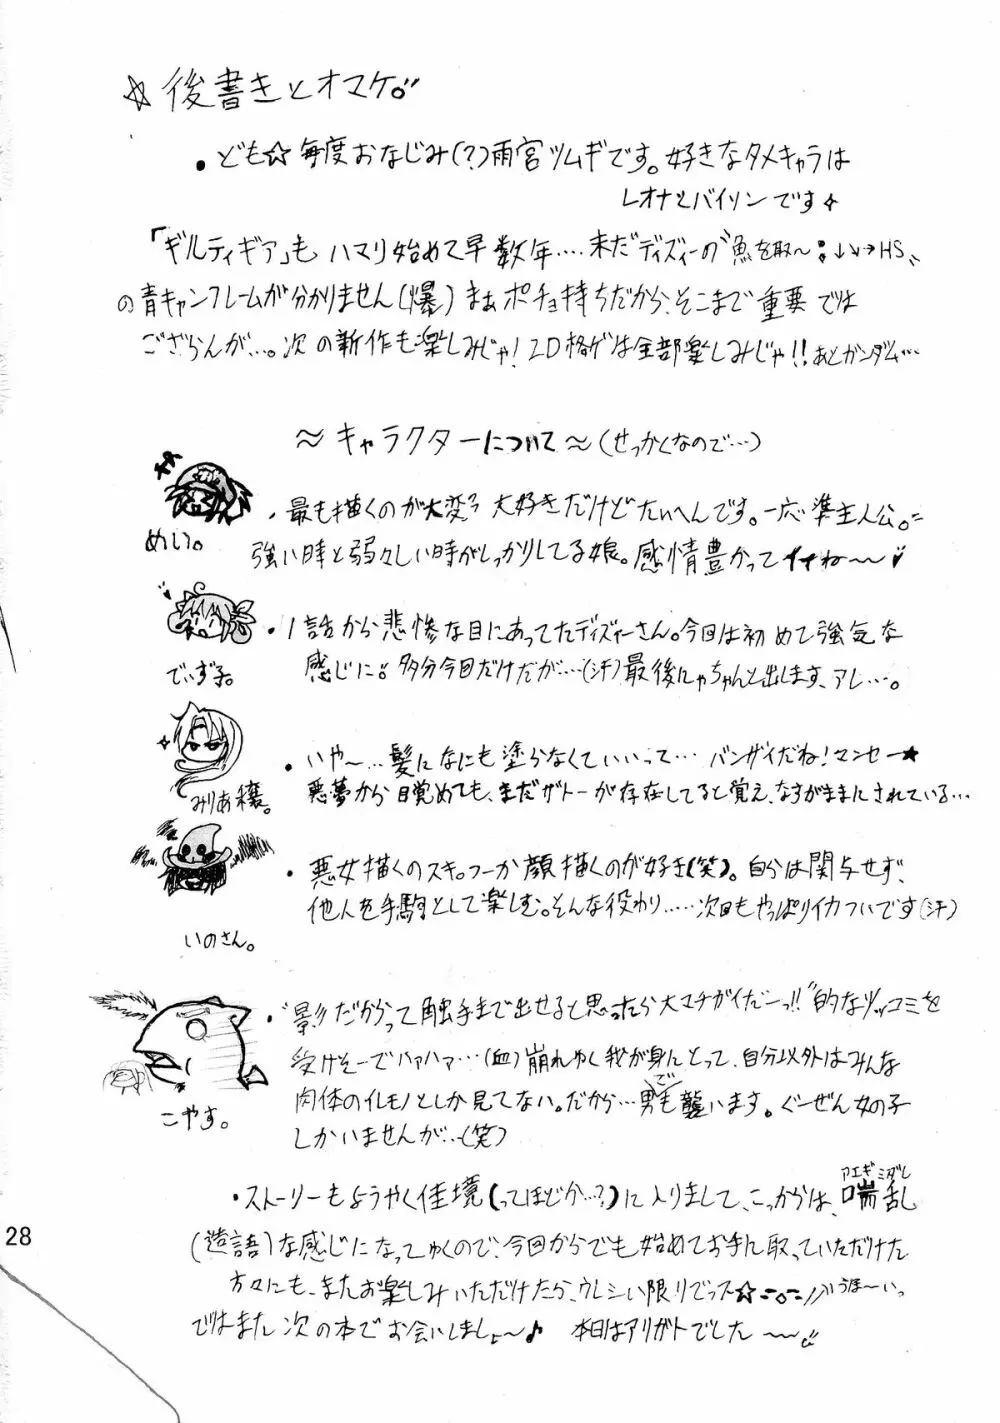 ☆後書きとオマケ。
・ども☆毎度おなじみ(?)雨宮ツムギです。好きなタメキャラは
レオナとバイソンです
「ギルティギア」もハマり始めて早数年....未だディズィーの"魚を取〜:↓↘→HS"
の青キャンフレームが分かりません(爆)まぁポチョ持ちだから、そこまで重要では
ござらんが...。次の新作も楽しみじゃ!2D格ゲは全部楽しみじゃ!!あとガンダム...
〜キャラクターについて〜(せっかくなので...)
めい。
・最も描くのが大変 大好きだけどたいへんです。一応準主人公。
強い時と弱々しい時がしっかりしてる娘。感情豊かってイイね〜
でぃず子。
・1話から悲惨な目にあってたディズィーさん。今回は初めて強気な
感じに。多分今回だけだが....(汗)最後にゃちゃんと出します、アレ...。
みりあ穣。
・いや〜...髪になにも塗らなくていいって...バンザイだね!マンセー★
悪夢から目覚めても、まだザトーが存在してると覚え、なすがままにされている...
いのさん。
・悪女描くのスキ。つーか顔描くのが好き(笑)。自分は関与せず、
他人を手駒として楽しむ。そんな役わり.....次回もやっぱりイカついです(汗)
こやす。
・"影だからって触手まで出せると思ったら大マチガイだーっ!!"的なツッコミを
受けそーでハァハァ...(血)崩れゆく我が身にとって、自分以外はみんな
肉体のイレモノとしか見てない。だから...男でも襲います。ぐーぜん女の子
しかいませんが..(笑)
・ストーリーもようやく佳境(ってほどか..?)に入りまして、こっからは、喘乱
アエギミダレ
(造語)な感じになってゆくので、今回からでも始めてお手に取っていただけた
方々にも、またお楽しみいただけたら、ウレシい限りでっス☆=o= うほ〜いっ
ではまた次の本でお会いしましょ〜♪ 本日はアリガトでした〜
28